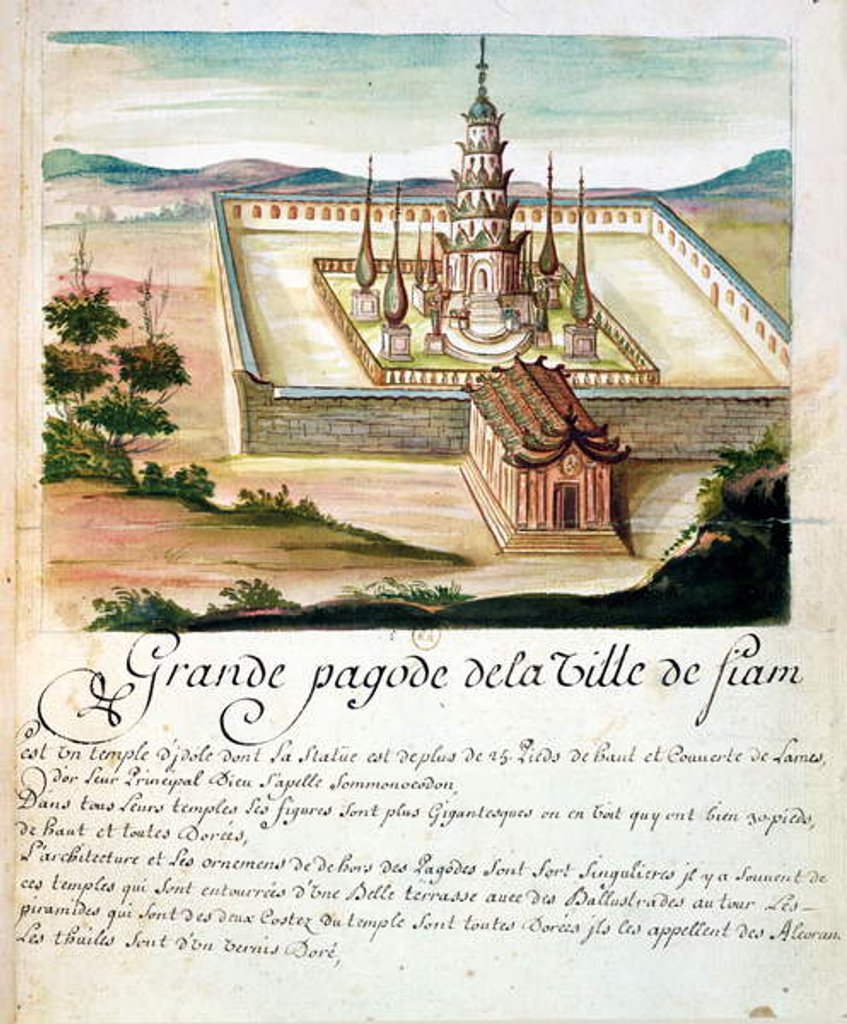 Grande pagode dela Ville de siam
c'est Vn temple d'jdole dont La Statüe est deplus de 25. Pieds de haut et Couuerte de Lames,
d'or Leur Principal Dieu s'apelle Sommonocodon,
Dans tous Leurs temples Les figures sont plus Gigantesques on en Voit quy ont bien 30. pieds,
de haut et toutes Dorées,
L'architecture et Les ornemens de dehors des Pagodes sont fort singulieres jl y a souuent de
ces temples qui sont entourrées d'Vne Belle terrasse auec des Ballustrades autour Les
piramides qui sont des deux Costez Du temple sont toutes Dorées jls les appellent des Alcoran.
Les thuiles sont d'Vn Vernis Doré,